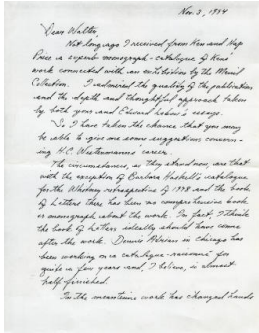 Nov. 3, 1994
Dear Walter,
Not long ago I received from Ken and Hap
Price a superb monograph-catalogue of Ken's
work connected with an exhibition by the Menil
Collection. I admired the quality of the publication
and the depth and thoughtful approach taken
by both your and Edward Lebow's essays.
So I have taken the chance that you may
be able to give me some suggestions concern-
ing H.C. Westermann's career.
The circumstances, as they stand now, are that
with the exception of Barbara Haskell's catalogue
for the Whitney retrospective of 1978 and the book
of Letters there has been no comprehensive book
or monograph about the work. In fact I think
the book of Letters ideally should have come
after the work. Dennis Adrian in Chicago has
been working on a catalogue-raisonné for
quite a few years and, I believe, is almost
half finished.
In the meantime work has changed hands